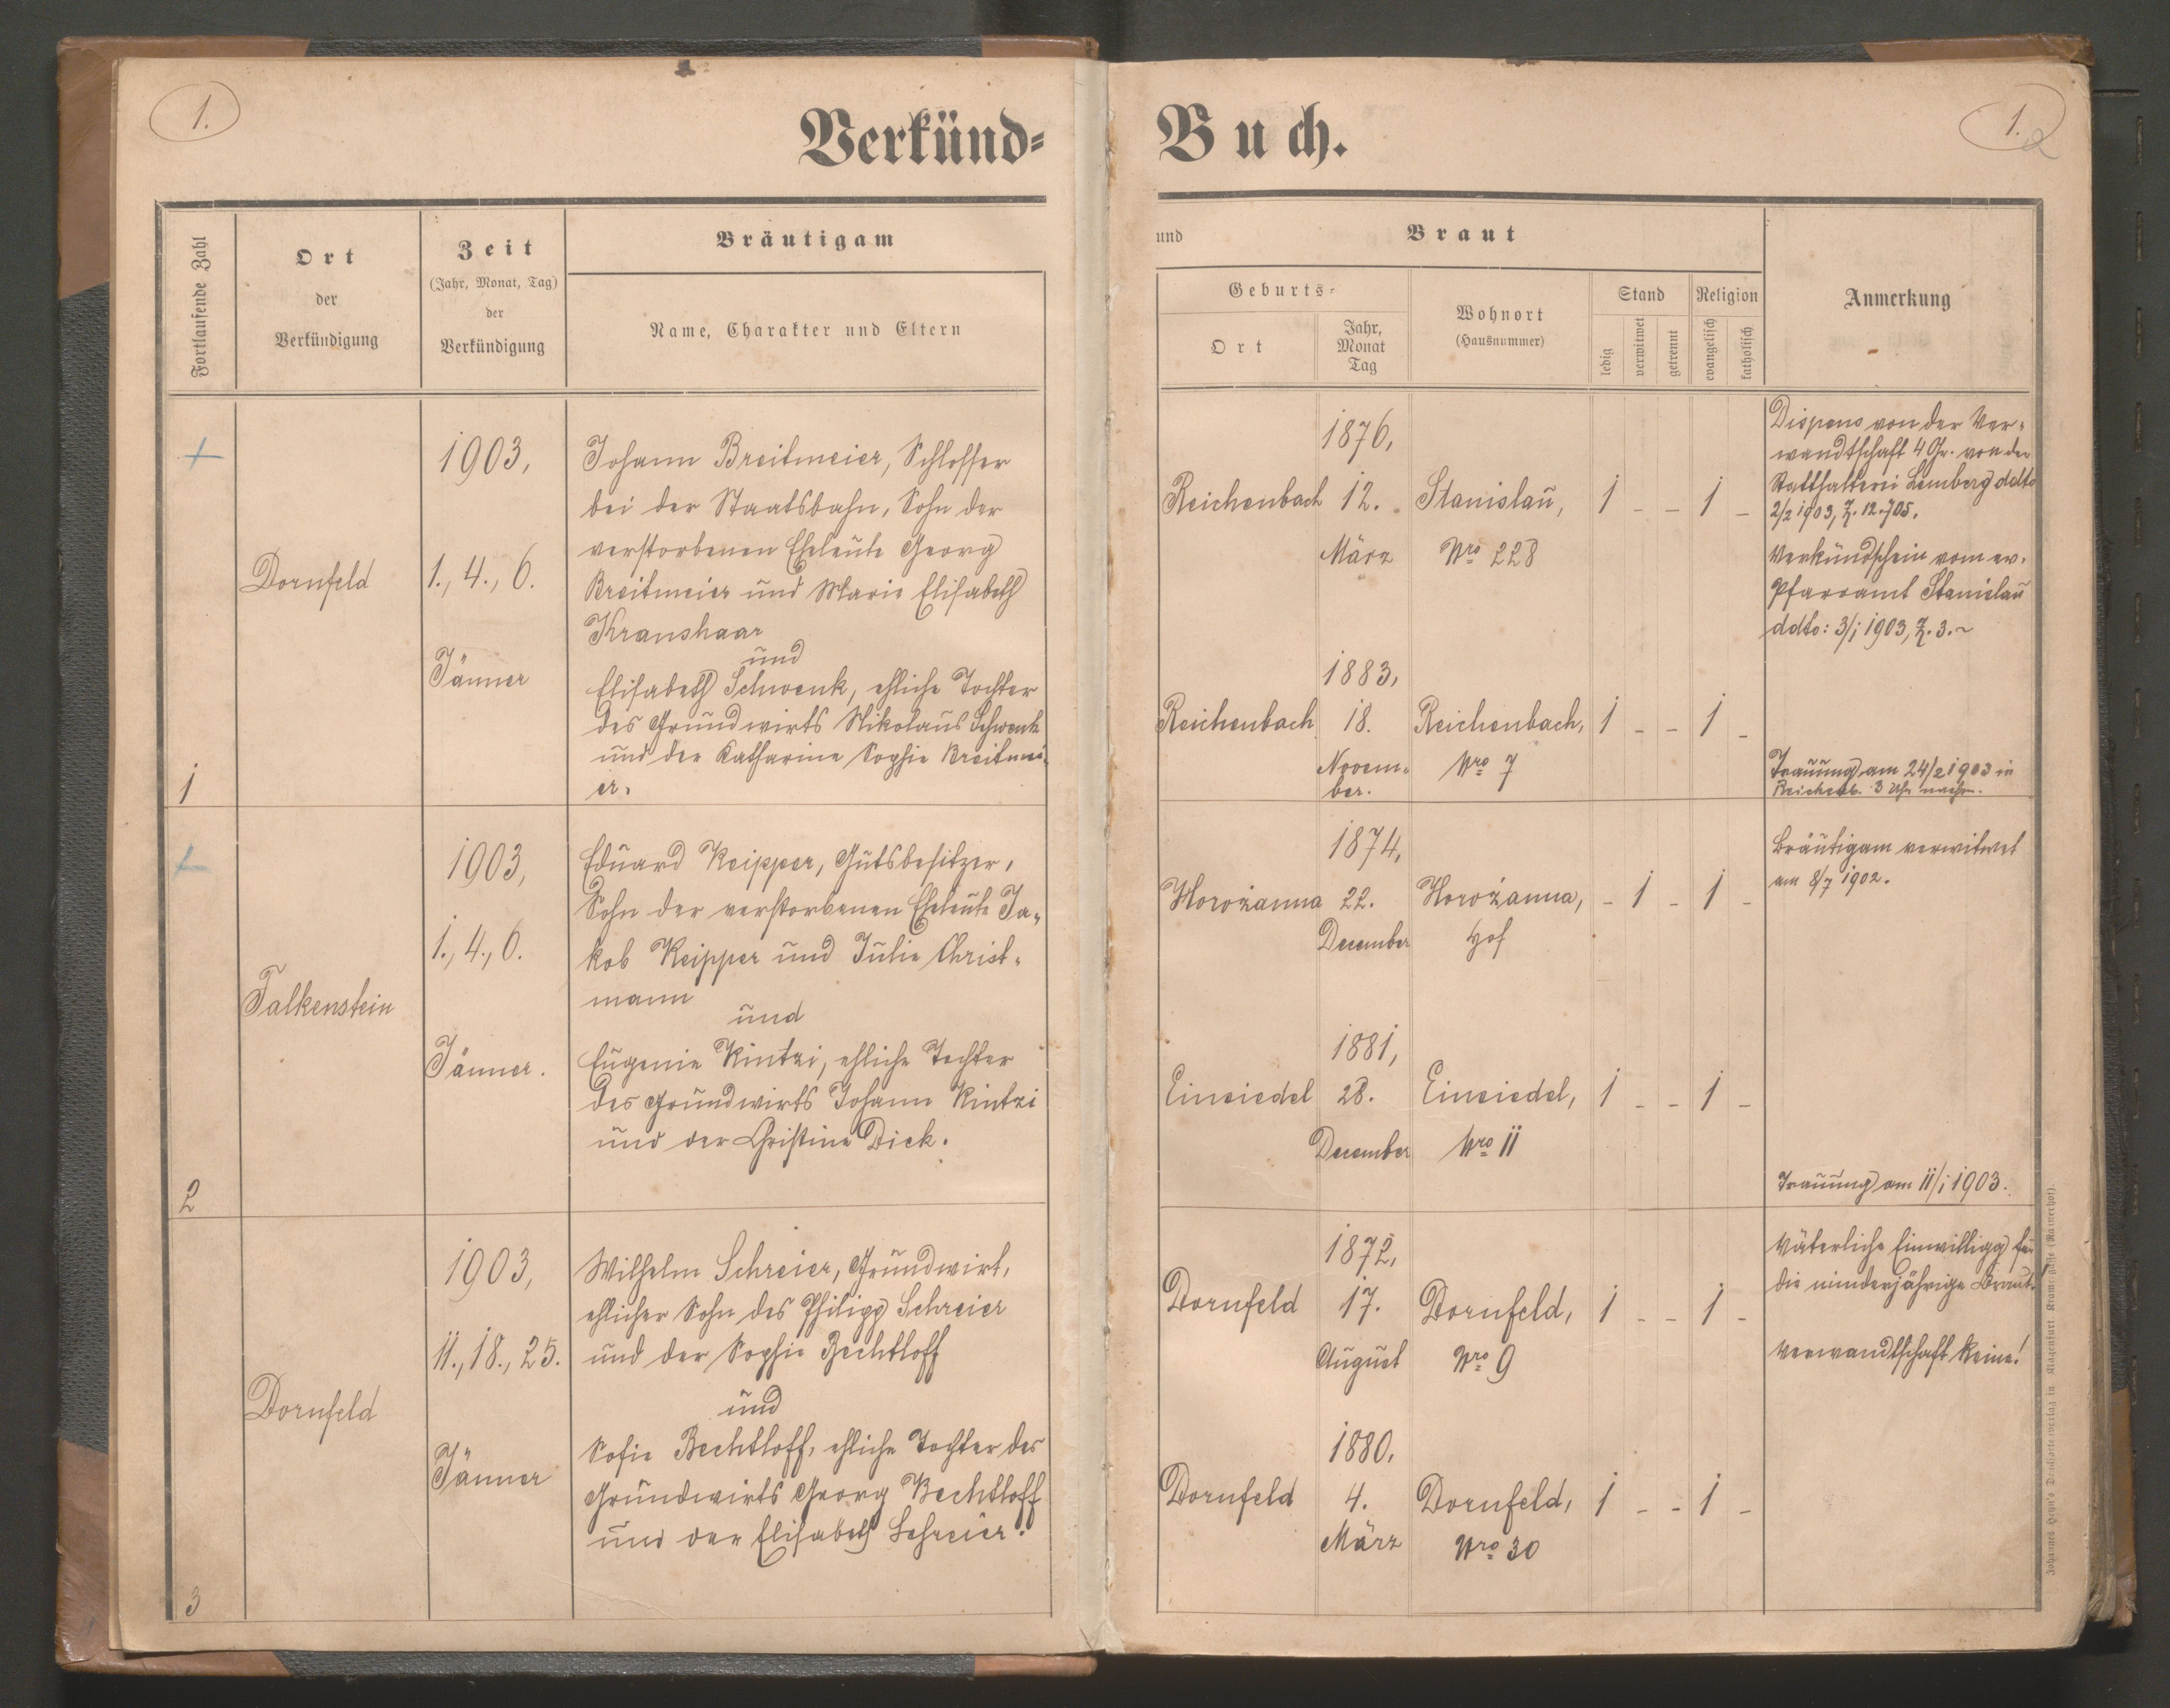 1.
Verkünd-
Buch.
1.
2
Fortlaufende Zahl
Ort
der
Verkündigung
Zeit
(Jahr, Monat, Tag)
der
Verkündigung
Bräutigam
Name, Charakter und Eltern
und
Braut
Geburts-
Ort
Jahr,
Monat
Tag
Wohnort
(Hausnummer)
Stand
ledig
verwitwet
getrennt
Religion
evangelisch
katholisch
Anmerkung
+
1
Dornfeld
1903,
1., 4., 6.
Jänner
Johann Breitmeier, Schlosser
bei der Staatsbahn, Sohn der
verstorbenen Eheleute Georg
Breitmeier und Marie Elisabeth
Kranshaar
und
Elisabeth Schwenk, ehliche Tochter
des Grundwirts Nikolaus Schwenk
und der Katharine Sophie Breitmei-
er.
Reichenbach
1876,
12.
März
Stanislau,
Nro 228
1 - - 1 -
Reichenbach
1883,
18.
Novem-
ber.
Reichenbach,
Nro 7
1 - - 1 -
Dispens von der Ver-
wandtschaft 4 Gr. von der
Statthalterei Lemberg ddto
2/2 1903, Z. 12.705.
Verkündschein vom ev.
Pfarramt Stanislau
ddto: 3/1 1903, Z. 3. ~
Trauung am 24/2 1903 in
Reichenb. 3 Uhr nachm.
+
2
Falkenstein
1903,
1., 4., 6.
Jänner.
Eduard Keipper, Gutsbesitzer,
Sohn der verstorbenen Eheleute Ja-
kob Keipper und Julie Christ-
mann
und
Eugenie Kintzi, ehliche Tochter
des Grundwirts Johann Kintzi
und der Christine Dick.
Horożanna
1874,
22.
December
Horożanna,
Hof
- 1 - 1 -
Einsiedel
1881,
28.
December
Einsiedel,
Nro 11
1 - - 1 -
Bräutigam verwitwet
am 8/7 1902.
Trauung am 11/1 1903.
3
Dornfeld
1903,
11., 18., 25.
Jänner
Wilhelm Schreier, Grundwirt,
ehlicher Sohn des Philipp Schreier
und der Sophie Bechtloff
und
Sofie Bechtloff, ehliche Tochter des
Grundwirts Georg Bechtloff
und der Elisabeth Schreier.
Dornfeld
1872,
17.
August
Dornfeld,
Nro 9
1 - - 1 -
Dornfeld
1880,
4.
März
Dornfeld,
Nro 30
1 - - 1 -
Väterliche Einwilligg für
die minderjährige Braut.
Verwandtschaft keine!
Johannes Heyn's Denkarte verlag in Klagenfurt, Kramergasse (Rainerhof).